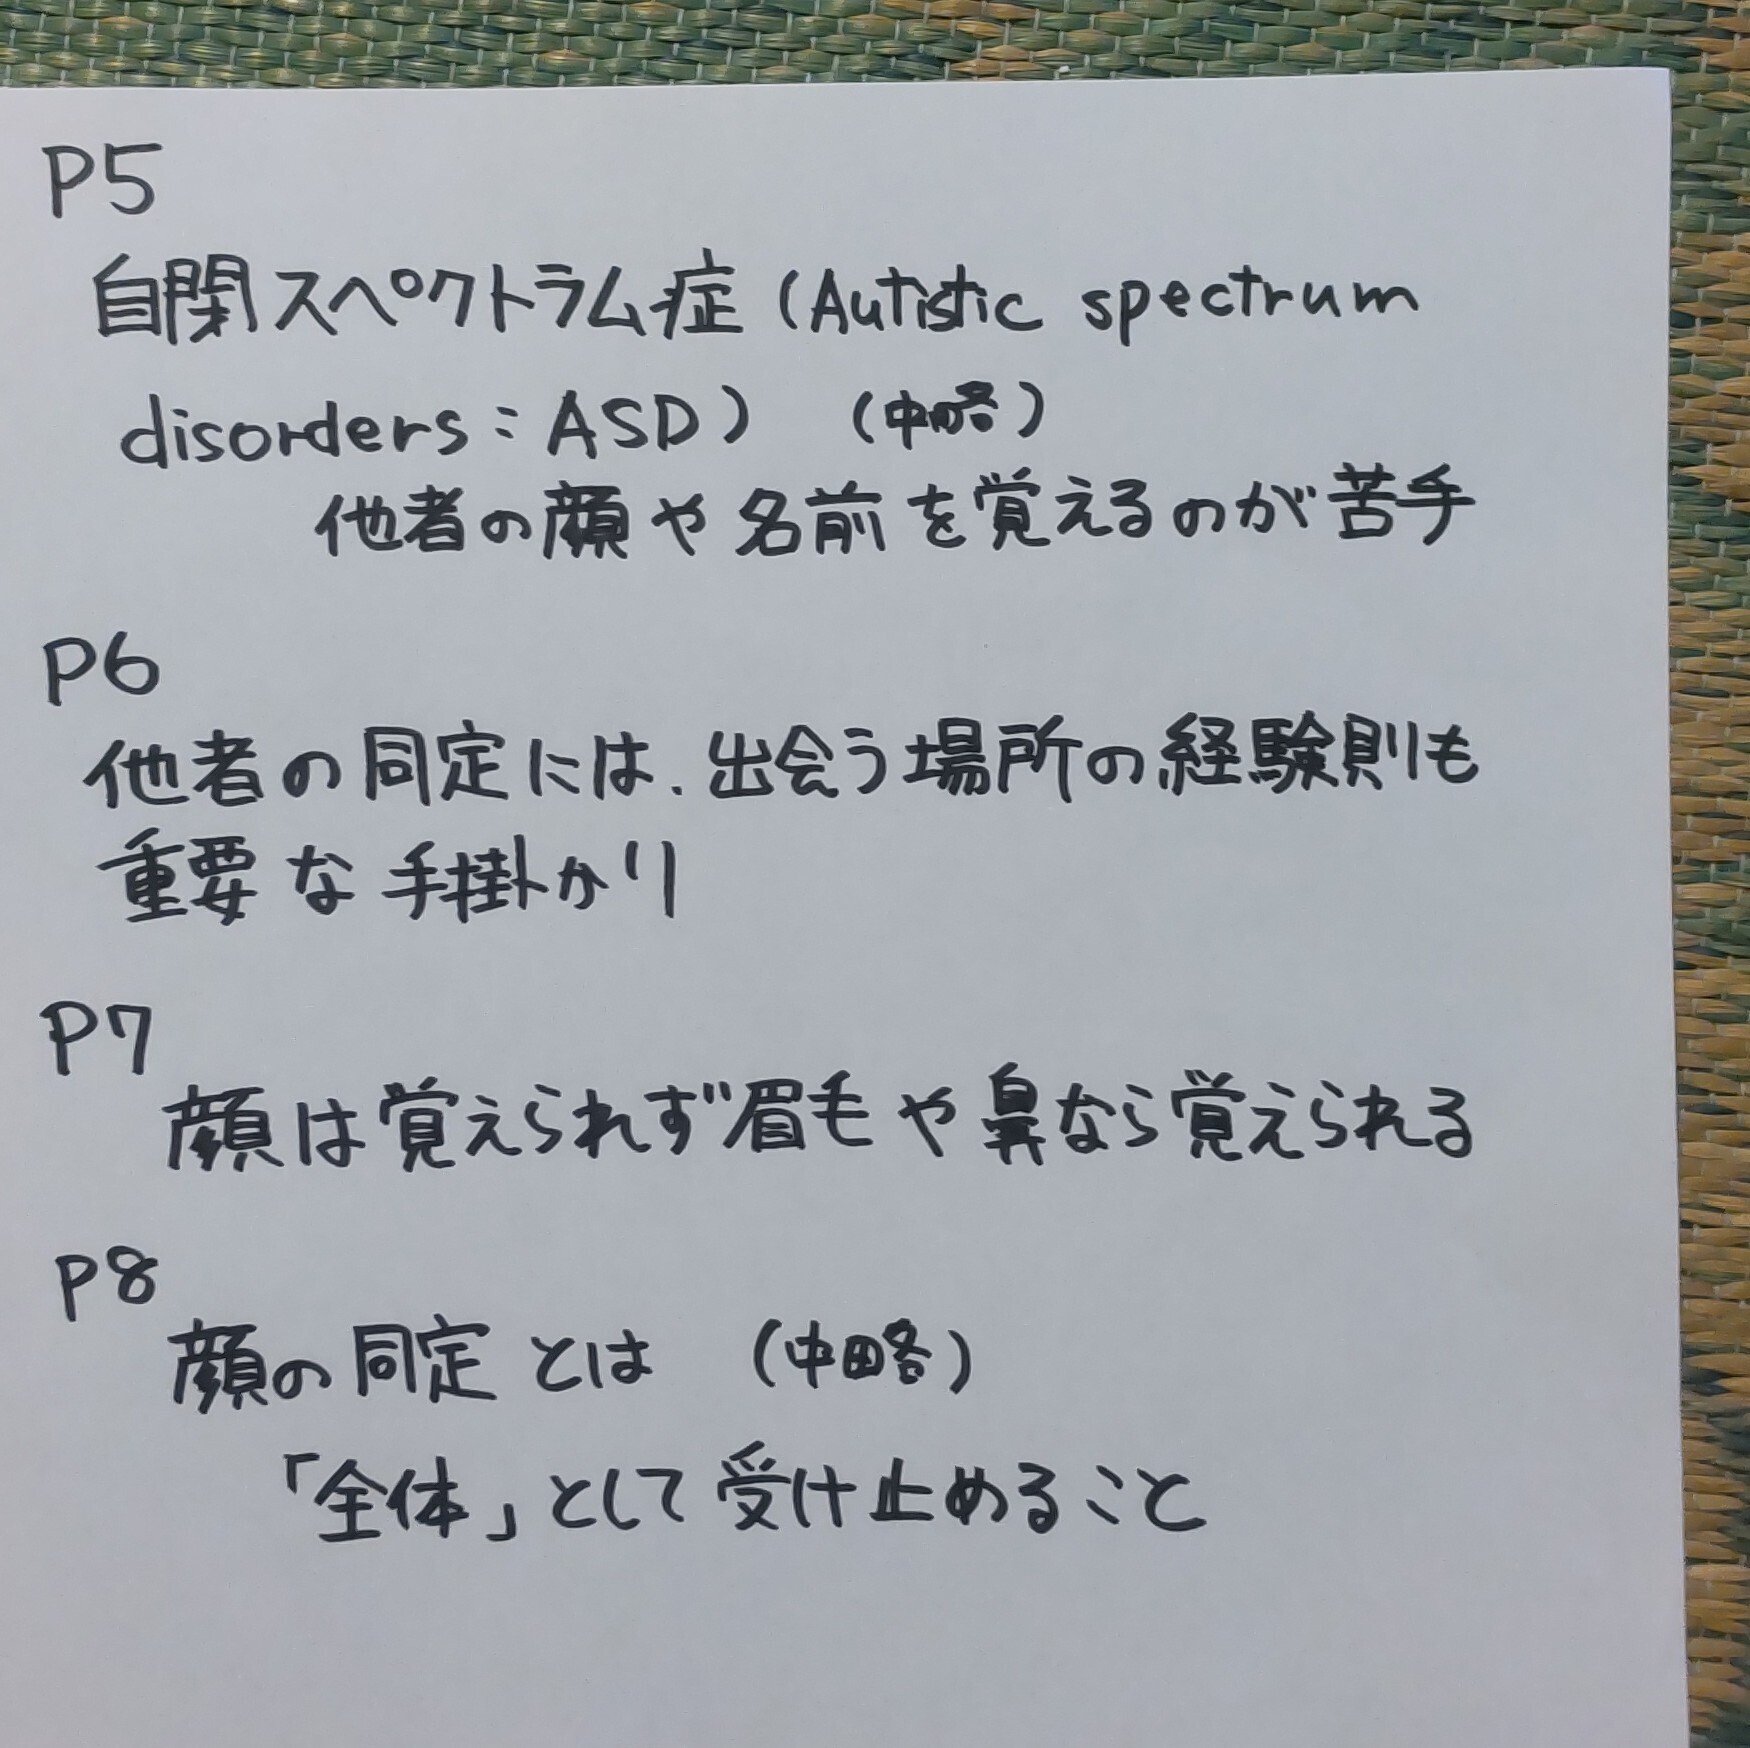 P5
自閉スペクトラム症(Autistic spectrum
disorders:ASD) (中略)
他者の顔や名前を覚えるのが苦手
P6
他者の同定には、出会う場所の経験則も
重要な手掛かり
P7
顔は覚えられず眉毛や鼻なら覚えられる
P8
顔の同定とは (中略)
「全体」として受け止めること